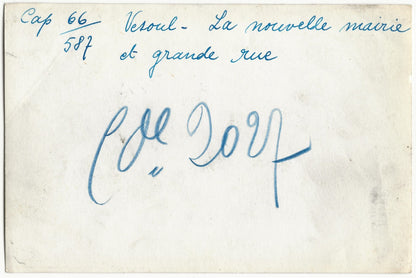 Cap 66/587 Vesoul - La nouvelle mairie
et grande rue
Cde 2027